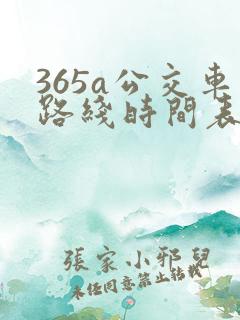 365a公交车
路线时间表
張家小邪兒
未任同意禁止转载